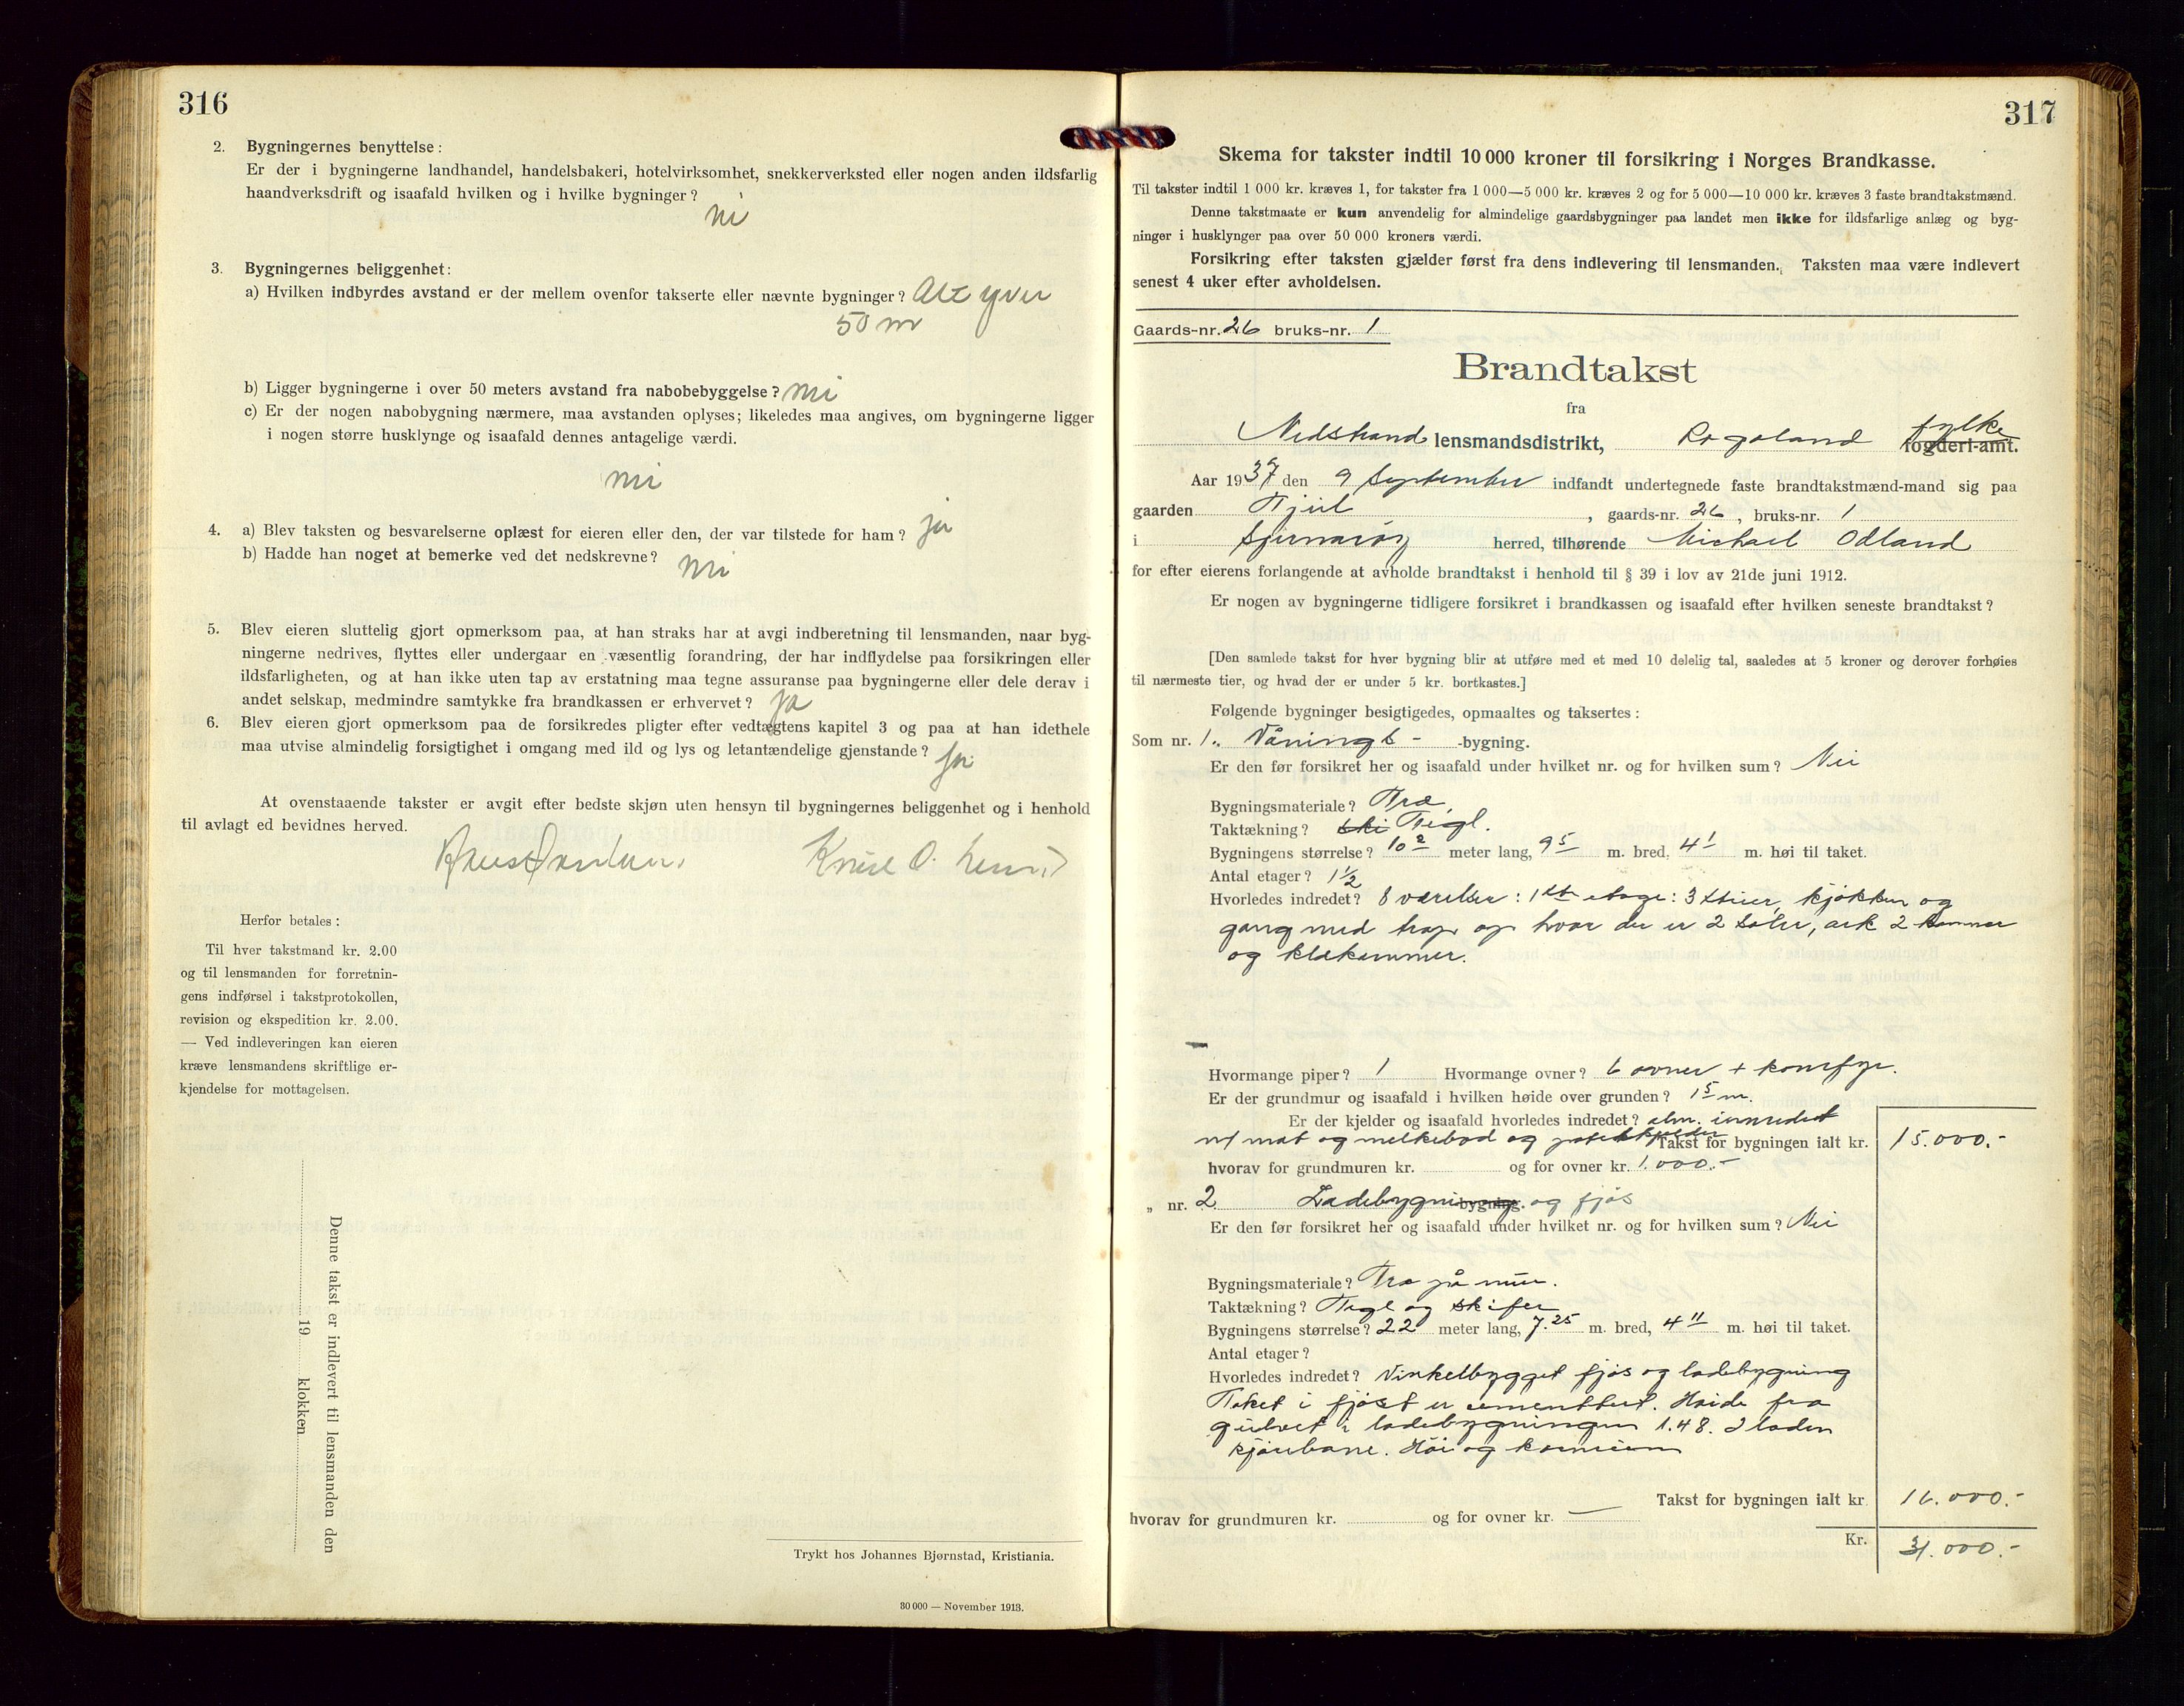 316
2. Bygningernes benyttelse:
Er der i bygningerne landhandel, handelsbakeri, hotelvirksomhet, snekkerverksted eller nogen anden ildsfarlig
haandverksdrift og isaafald hvilken og i hvilke bygninger?
nei
3. Bygningernes beliggenhet:
a) Hvilken indbyrdes avstand er der mellem ovenfor takserte eller nævnte bygninger? Alt yver
50 m
b) Ligger bygningerne i over 50 meters avstand fra nabobebyggelse? nei
c) Er der nogen nabobygning nærmere, maa avstanden oplyses; likeledes maa angives, om bygningerne ligger
i nogen større husklynge og isaafald dennes antagelige værdi.
nei
4. a) Blev taksten og besvarelserne oplæst for eieren eller den, der var tilstede for ham? ja
b) Hadde han noget at bemerke ved det nedskrevne? nei
5. Blev eieren sluttelig gjort opmerksom paa, at han straks har at avgi indberetning til lensmanden, naar byg-
ningerne nedrives, flyttes eller undergaar en væsentlig forandring, der har indflydelse paa forsikringen eller
ildsfarligheten, og at han ikke uten tap av erstatning maa tegne assuranse paa bygningerne eller dele derav i
andet selskap, medmindre samtykke fra brandkassen er erhvervet? ja
6. Blev eieren gjort opmerksom paa de forsikredes pligter efter vedtægtens kapitel 3 og paa at han idethele
maa utvise almindelig forsigtighet i omgang med ild og lys og letantændelige gjenstande? ja
At ovenstaaende takster er avgit efter bedste skjøn uten hensyn til bygningernes beliggenhet og i henhold
til avlagt ed bevidnes herved.
Knut O.
Herfor betales:
Til hver takstmand kr. 2.00
og til lensmanden for forretnin-
gens indførsel i takstprotokollen,
revision og ekspedition kr. 2.00.
— Ved indleveringen kan eieren
kræve lensmandens skriftlige er-
kjendelse for mottagelsen.
Denne takst er indlevert til lensmanden den
19 klokken
Trykt hos Johannes Bjørnstad, Kristiania.
30 000 — November 1913.
317
Skema for takster indtil 10 000 kroner til forsikring i Norges Brandkasse.
Til takster indtil 1 000 kr. kræves 1, for takster fra 1 000—5 000 kr. kræves 2 og for 5 000—10 000 kr. kræves 3 faste brandtakstmænd.
Denne takstmaate er kun anvendelig for almindelige gaardsbygninger paa landet men ikke for ildsfarlige anlæg og byg-
ninger i husklynger paa over 50 000 kroners værdi.
Forsikring efter taksten gjælder først fra dens indlevering til lensmanden. Taksten maa være indlevert
senest 4 uker efter avholdelsen.
Gaards-nr. 26 bruks-nr. 1
Brandtakst
fra
Nedstrand lensmandsdistrikt, Rogaland fylke fogderi-amt.
Aar 1937 den 9 September indfandt undertegnede faste brandtakstmænd-mand sig paa
gaarden , gaards-nr. 26, bruks-nr. 1
i Sjernarøy herred, tilhørende Michael Odland
for efter eierens forlangende at avholde brandtakst i henhold til § 39 i lov av 21de juni 1912.
Er nogen av bygningerne tidligere forsikret i brandkassen og isaafald efter hvilken seneste brandtakst?
[Den samlede takst for hver bygning blir at utføre med et med 10 delelig tal, saaledes at 5 kroner og derover forhøies
til nærmeste tier, og hvad der er under 5 kr. bortkastes.]
Følgende bygninger besigtigedes, opmaaltes og taksertes:
Som nr. 1. Vånings- -bygning.
Er den før forsikret her og isaafald under hvilket nr. og for hvilken sum? Nei
Bygningsmateriale? Træ,
Taktækning? ski Tegl.
Bygningens størrelse? 10 2 meter lang, 9 5 m. bred, 4 1 m. høi til taket.
Antal etager? 1 1/2
Hvorledes indredet? 8 værelser: 1ste etage: 3 stuer, kjøkken og
gang med trap op hvor der er 2 saler, ark 2 kammer
og klekammer.
Hvormange piper? 1 Hvormange ovner? 6 ovner + komfyr.
Er der grundmur og isaafald i hvilken høide over grunden? 1 5 m.
Er der kjelder og isaafald hvorledes indredet? alm. innredet
m/ mat og melkebod og potetkjelder Takst for bygningen ialt kr. 15.000.-
hvorav for grundmuren kr. og for ovner kr. 1.000.-
„ nr. 2 Ladebygning bygning. og fjøs
Er den før forsikret her og isaafald under hvilket nr. og for hvilken sum? Nei
Bygningsmateriale? Træ på mur.
Taktækning? Tegl og skifer
Bygningens størrelse? 22 meter lang, 7.25 m. bred, 4 11 m. høi til taket.
Antal etager?
Hvorledes indredet? Vinkelbygget fjøs og ladebygning
Taket i fjøset er sementert. Høide fra
gulvet i ladebygningen 1.48. I laden
kjørebane. Høi og kornrum
Takst for bygningen ialt kr. 16.000.-
hvorav for grundmuren kr. og for ovner kr. —
Kr. 31.000.-